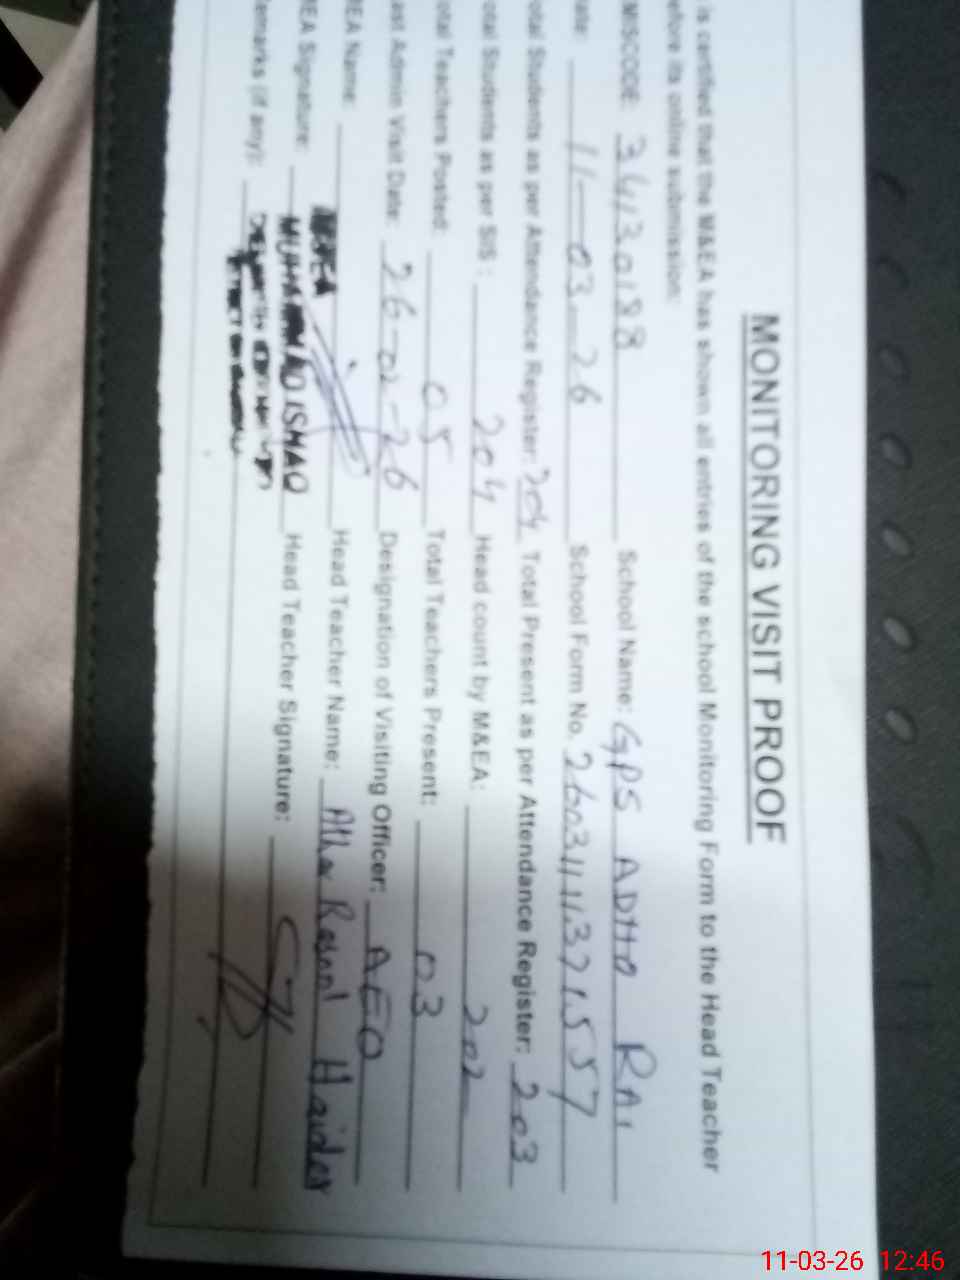 MONITORING VISIT PROOF
is certified that the M&EA has shown all entries of the school Monitoring Form to the Head Teacher
efore its online submission:
MISCODE: 34130188 School Name: GPS ADHO RAI
ate: 11-03-26 School Form No.
otal Students as per Attendance Register: 204 Total Present as per Attendance Register: 203
otal Students as per SIS: 204 Head count by M&EA: 202
otal Teachers Posted: 05 Total Teachers Present: 03
ast Admin Visit Date: 26-02-26 Designation of Visiting Officer: AEO
EA Name: Head Teacher Name: Athar Rasool Haider
EA Signature: MUHAMMAD ISHAQ Head Teacher Signature:
emarks (if any):
11-03-26 12:46